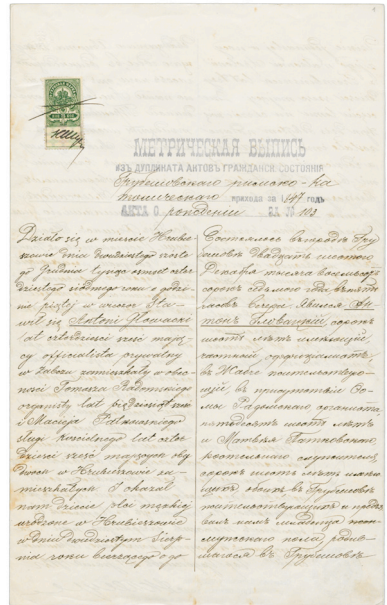 МЕТРИЧЕСКАЯ ВЫПИСЬ
ИЗЪ ДУПЛИКАТА АКТОВЪ ГРАЖДАНСК. СОСТОЯНІЯ
Грубешовскаго римско-ка
толическаго прихода за 1847 годъ
АКТА О рожденіи ЗА № 103
Działo się w mieście Hrubie
szowie dnia dwudziestego szóstego
Grudnia tysiąc ośmset czter
dziestego siódmego roku o godzi
nie piątej w wieczór Sta
wił się Antoni Głowacki
lat czterdzieści sześć mają
cy officialista prywatny
w zamieszkały w obec
ności Tomasza Radomskiego
organisty lat pięćdziesiąt
i Macieja
sługi kościelnego lat czter
dzieści sześć mających oby
dwóch w Hrubieszowie za
mieszkałych I okazał
nam dziecię płci męskiej
urodzone w Hrubieszowie
w dniu dwudziestym Sierp
nia roku bieżącego o go
Состоялось въ городѣ Гру
бешовѣ двадцать шестого
Декабря тысяча восемьсотъ
сорокъ седьмого года въ пять
часовъ вечера. Явился Ан
тонъ Гловацкій, сорокъ
шесть лѣтъ имѣющій,
частный оффиціалистъ,
въ жительствую
щій, въ присутствіи Ѳо
мы Радомскаго органиста
пятьдесятъ лѣтъ
и Матвѣя
костельнаго служителя,
сорокъ шесть лѣтъ имѣю
щихъ обоихъ въ Грубешовѣ
жительствующихъ и предъя
вилъ намъ младенца
мужескаго пола, родив
шагося въ Грубешовѣ